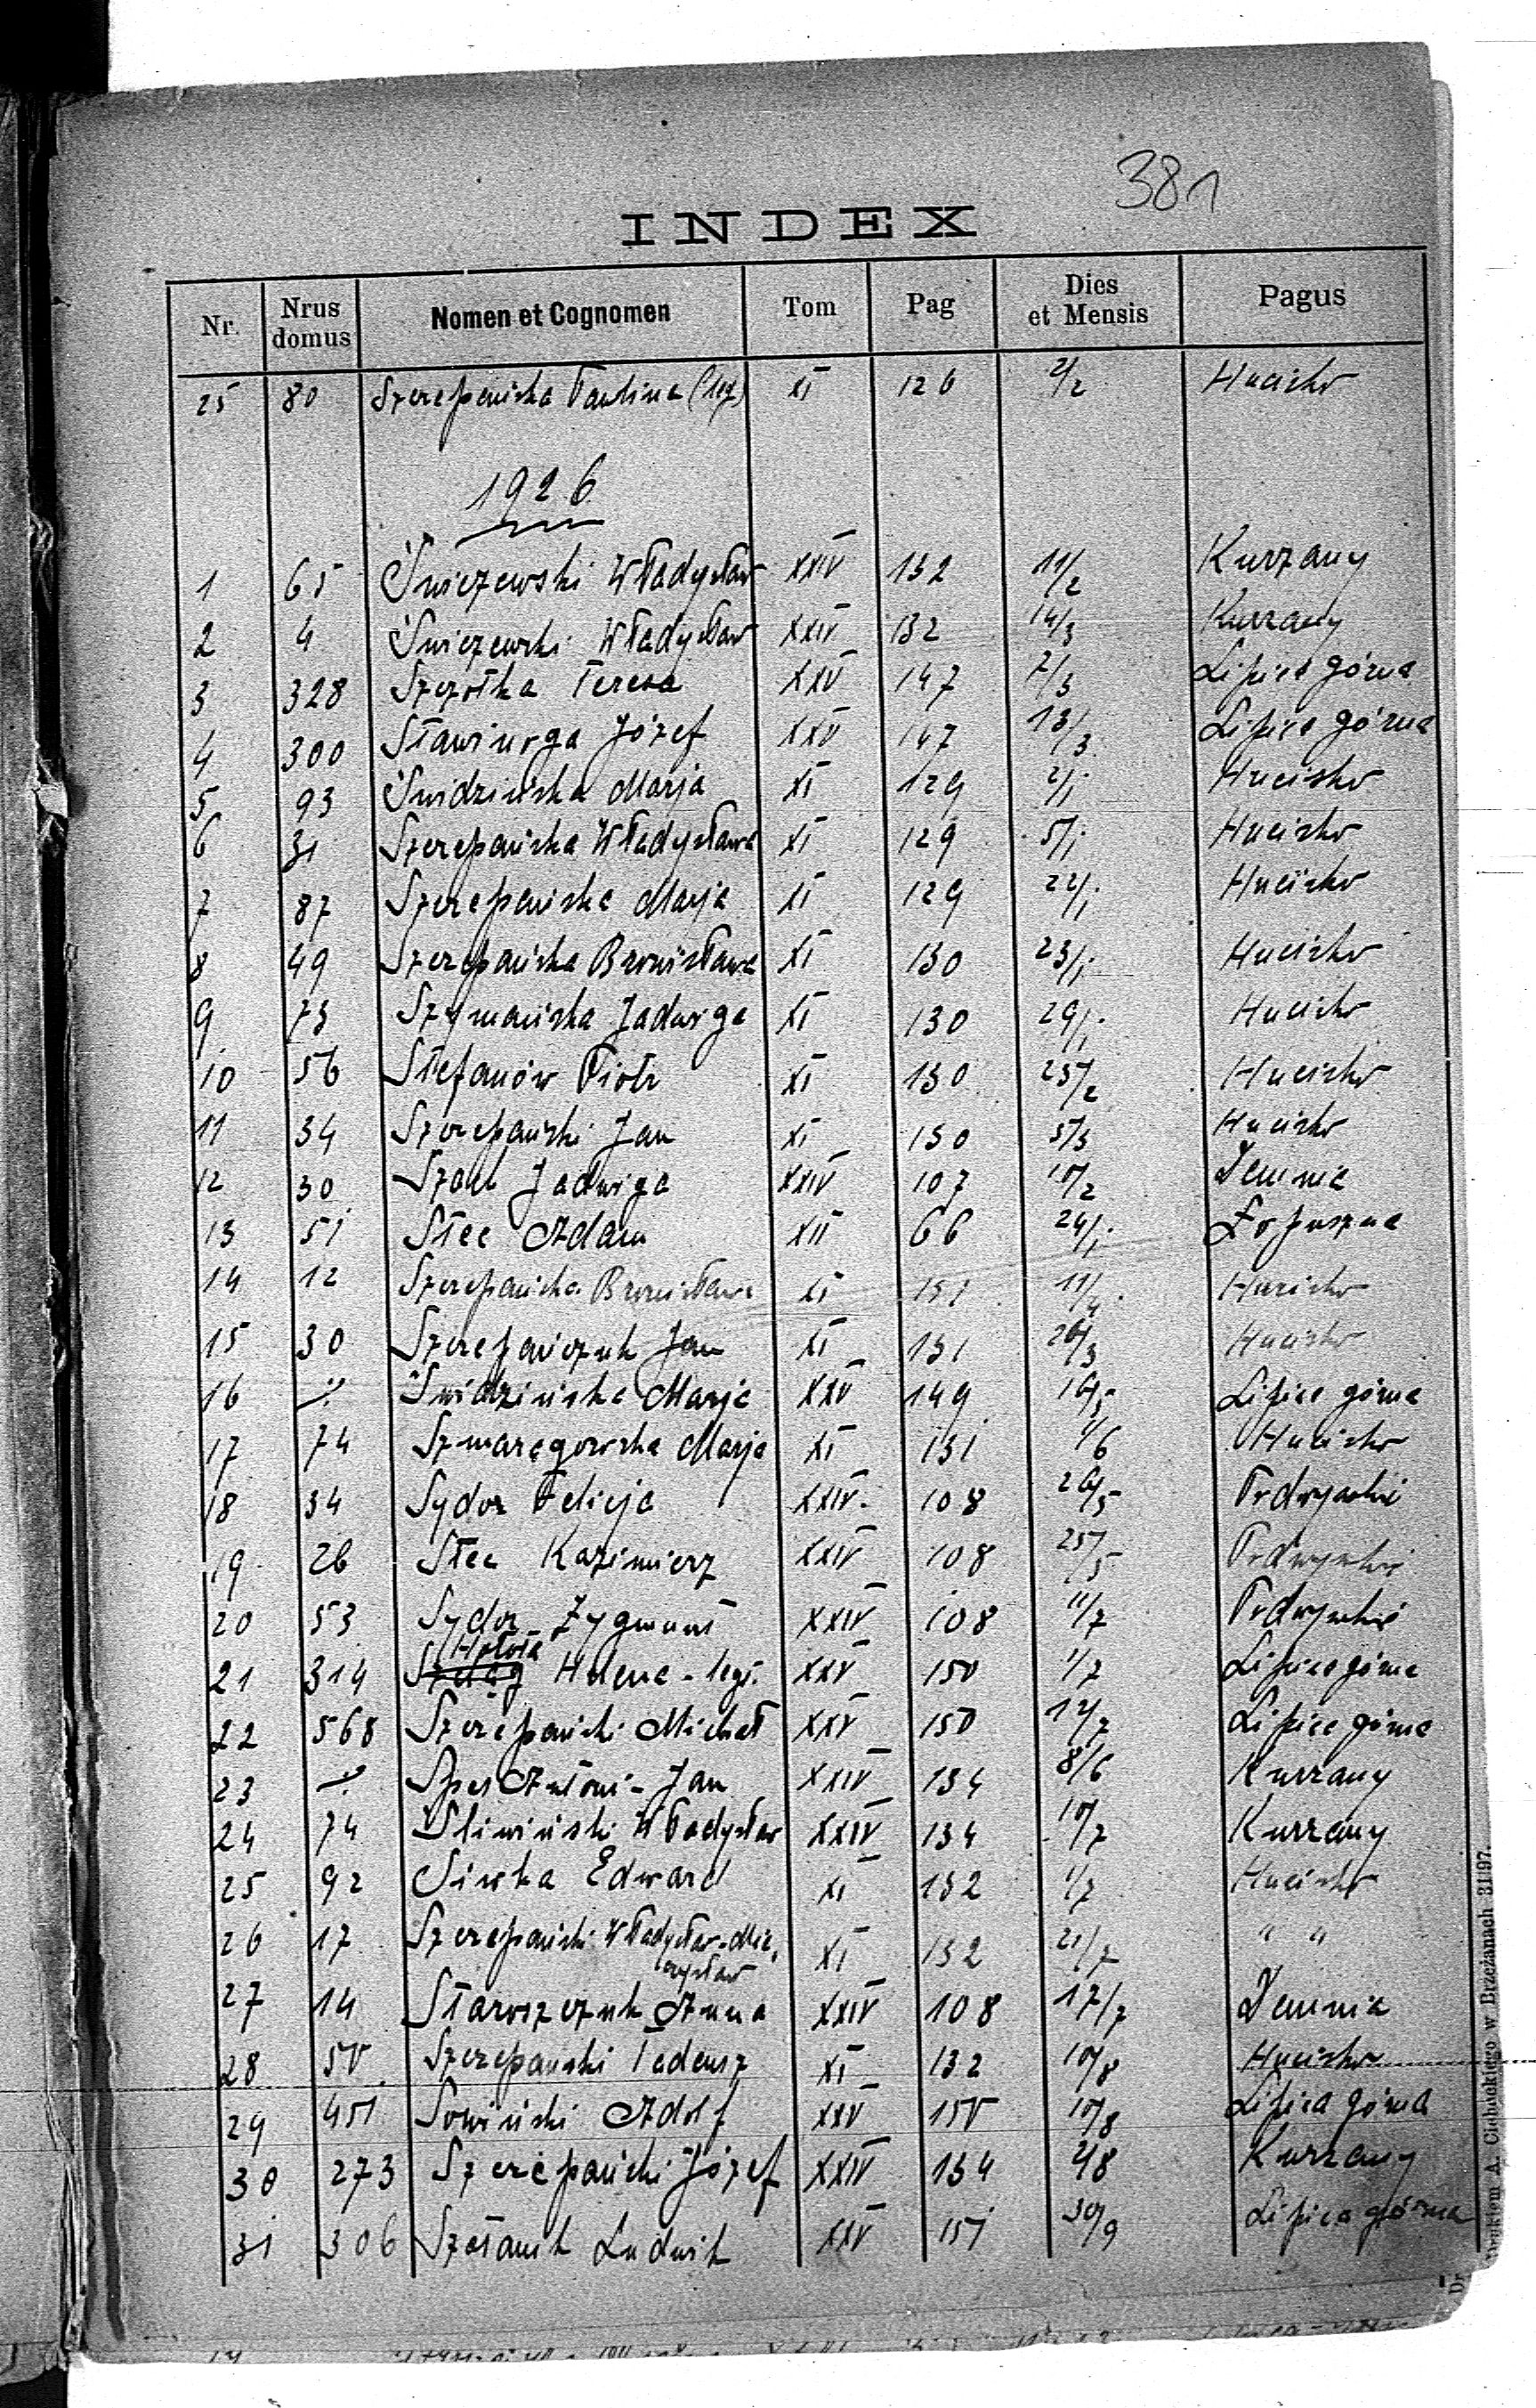 381
INDEX
Nr. Nrus domus Nomen et Cognomen Tom Pag Dies et Mensis Pagus
25 80 Szczepańska Paulina (leg) XI 126 2/2 Hucisko
1926
1 65 Świczewski Władysław XXIV 132 11/2 Kurzany
2 4 Świczewski Władysław XXIV 132 14/3 Kurzany
3 328 Szczotka Teresa XXV 147 7/3 Lipica górna
4 300 Stawinoga Józef XXV 147 13/3 Lipica górna
5 93 Świdzińska Marja XI 129 2/1 Hucisko
6 31 Szczepańska Władysława XI 129 5/1 Hucisko
7 87 Szczepańska Marja XI 129 22/1 Hucisko
8 49 Szczepańska Bronisława XI 130 23/1 Hucisko
9 73 Szymańska Jadwiga XI 130 29/1 Hucisko
10 56 Stefanów Piotr XI 130 25/2 Hucisko
11 34 Szczepański Jan XI 130 5/3 Hucisko
12 30 Jadwiga XXIV 107 10/2 Demnia
13 51 Stec Adam XII 66 24/1 Łopuszna
14 12 Szczepańska Bronisława XI 131 11/4 Hucisko
15 30 Szczepańczuk Jan XI 131 26/3 Hucisko
16 Świdzińska Marja XXV 149 16/5 Lipica górna
17 74 Szmaragowska Marja XI 131 1/6 Hucisko
18 34 Sydor Felicja XXIV. 108 26/5 Podwysokie
19 26 Stec Kazimierz XXIV 108 25/5 Podwysokie
20 53 Sydor Zygmunt XXIV 108 11/7 Podwysokie
Hołota
21 314 Szeląg Helena - leg. XXV 150 1/7 Lipica górna
22 568 Szczepański Michał XXV 150 12/7 Lipica górna
23 Spes Antoni - Jan XXIV 134 8/6 Kurzany
24 74 Śliwiński Władysław XXIV 134 10/7 Kurzany
25 92 Siwka Edward XI 132 1/7 Hucisko
26 17 Szczepański Władysław-Mie, XI 132 21/7 " "
czysław
27 14 Staroszczuk Anna XXIV 108 17/7 Demnia
28 50 Szczepański Tadeusz XI 132 10/8 Hucisko
29 451 Sowiński Adolf XXV 150 10/8 Lipica górna
30 273 Szczepański Józef XXIV 134 2/8 Kurzany
31 306 Ludwik XXV 151 30/9 Lipica górna
A. Cichockiego w Brzeżanach 31|97.